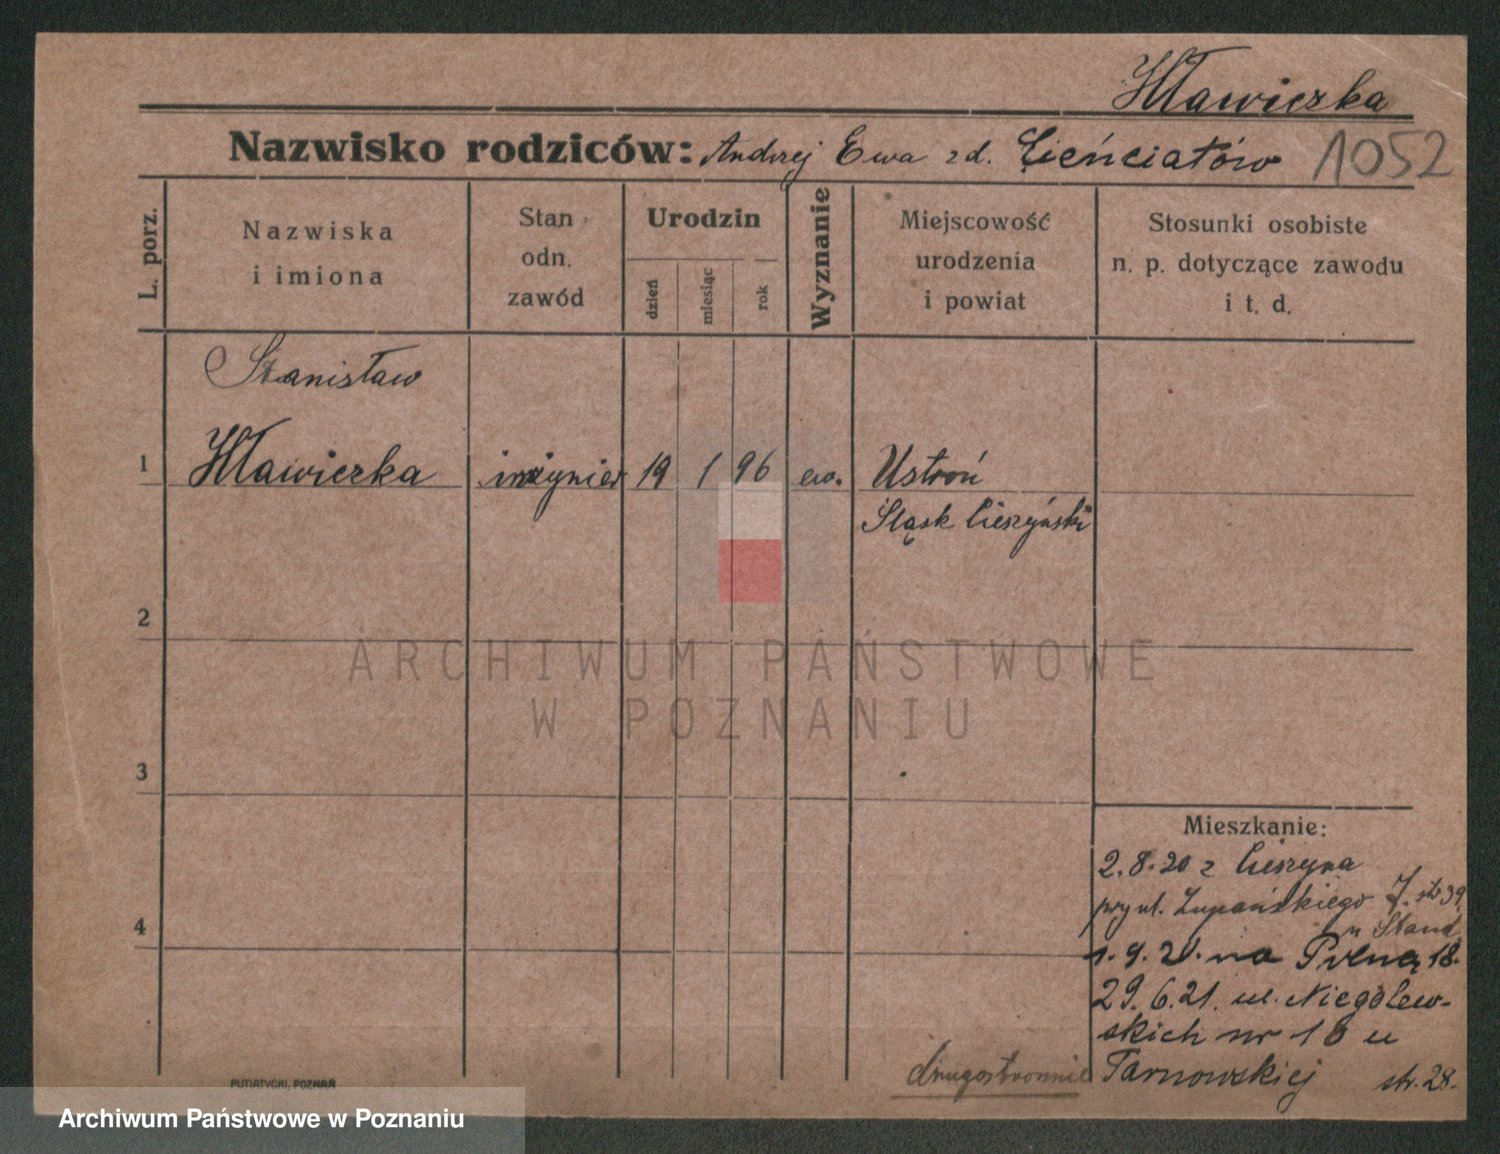 Hławiczka
Nazwisko rodziców: Andrzej Ewa zd. Cieńciałów 1052
L. porz.
Nazwiska
i imiona
Stan
odn.
zawód
Urodzin
dzień
miesiąc
rok
Wyznanie
Miejscowość
urodzenia
i powiat
Stosunki osobiste
n. p. dotyczące zawodu
i t. d.
Stanisław
1 Hławiczka inżynier 19 1 96 ew. Ustroń
Śląsk Cieszyński
2
ARCHIWUM PAŃSTWOWE
W POZNANIU
3
Mieszkanie:
2.8.20 z Cieszyna
przy ul. Żupańskiego 7. str 39
4
u Stand
1.9.20. na Polną 18.
29.6.21. ul. Niegolew-
skich nr 10 u
drugostronnie Tarnowskiej str. 28.
PUTIATYCKI, POZNAŃ
Archiwum Państwowe w Poznaniu